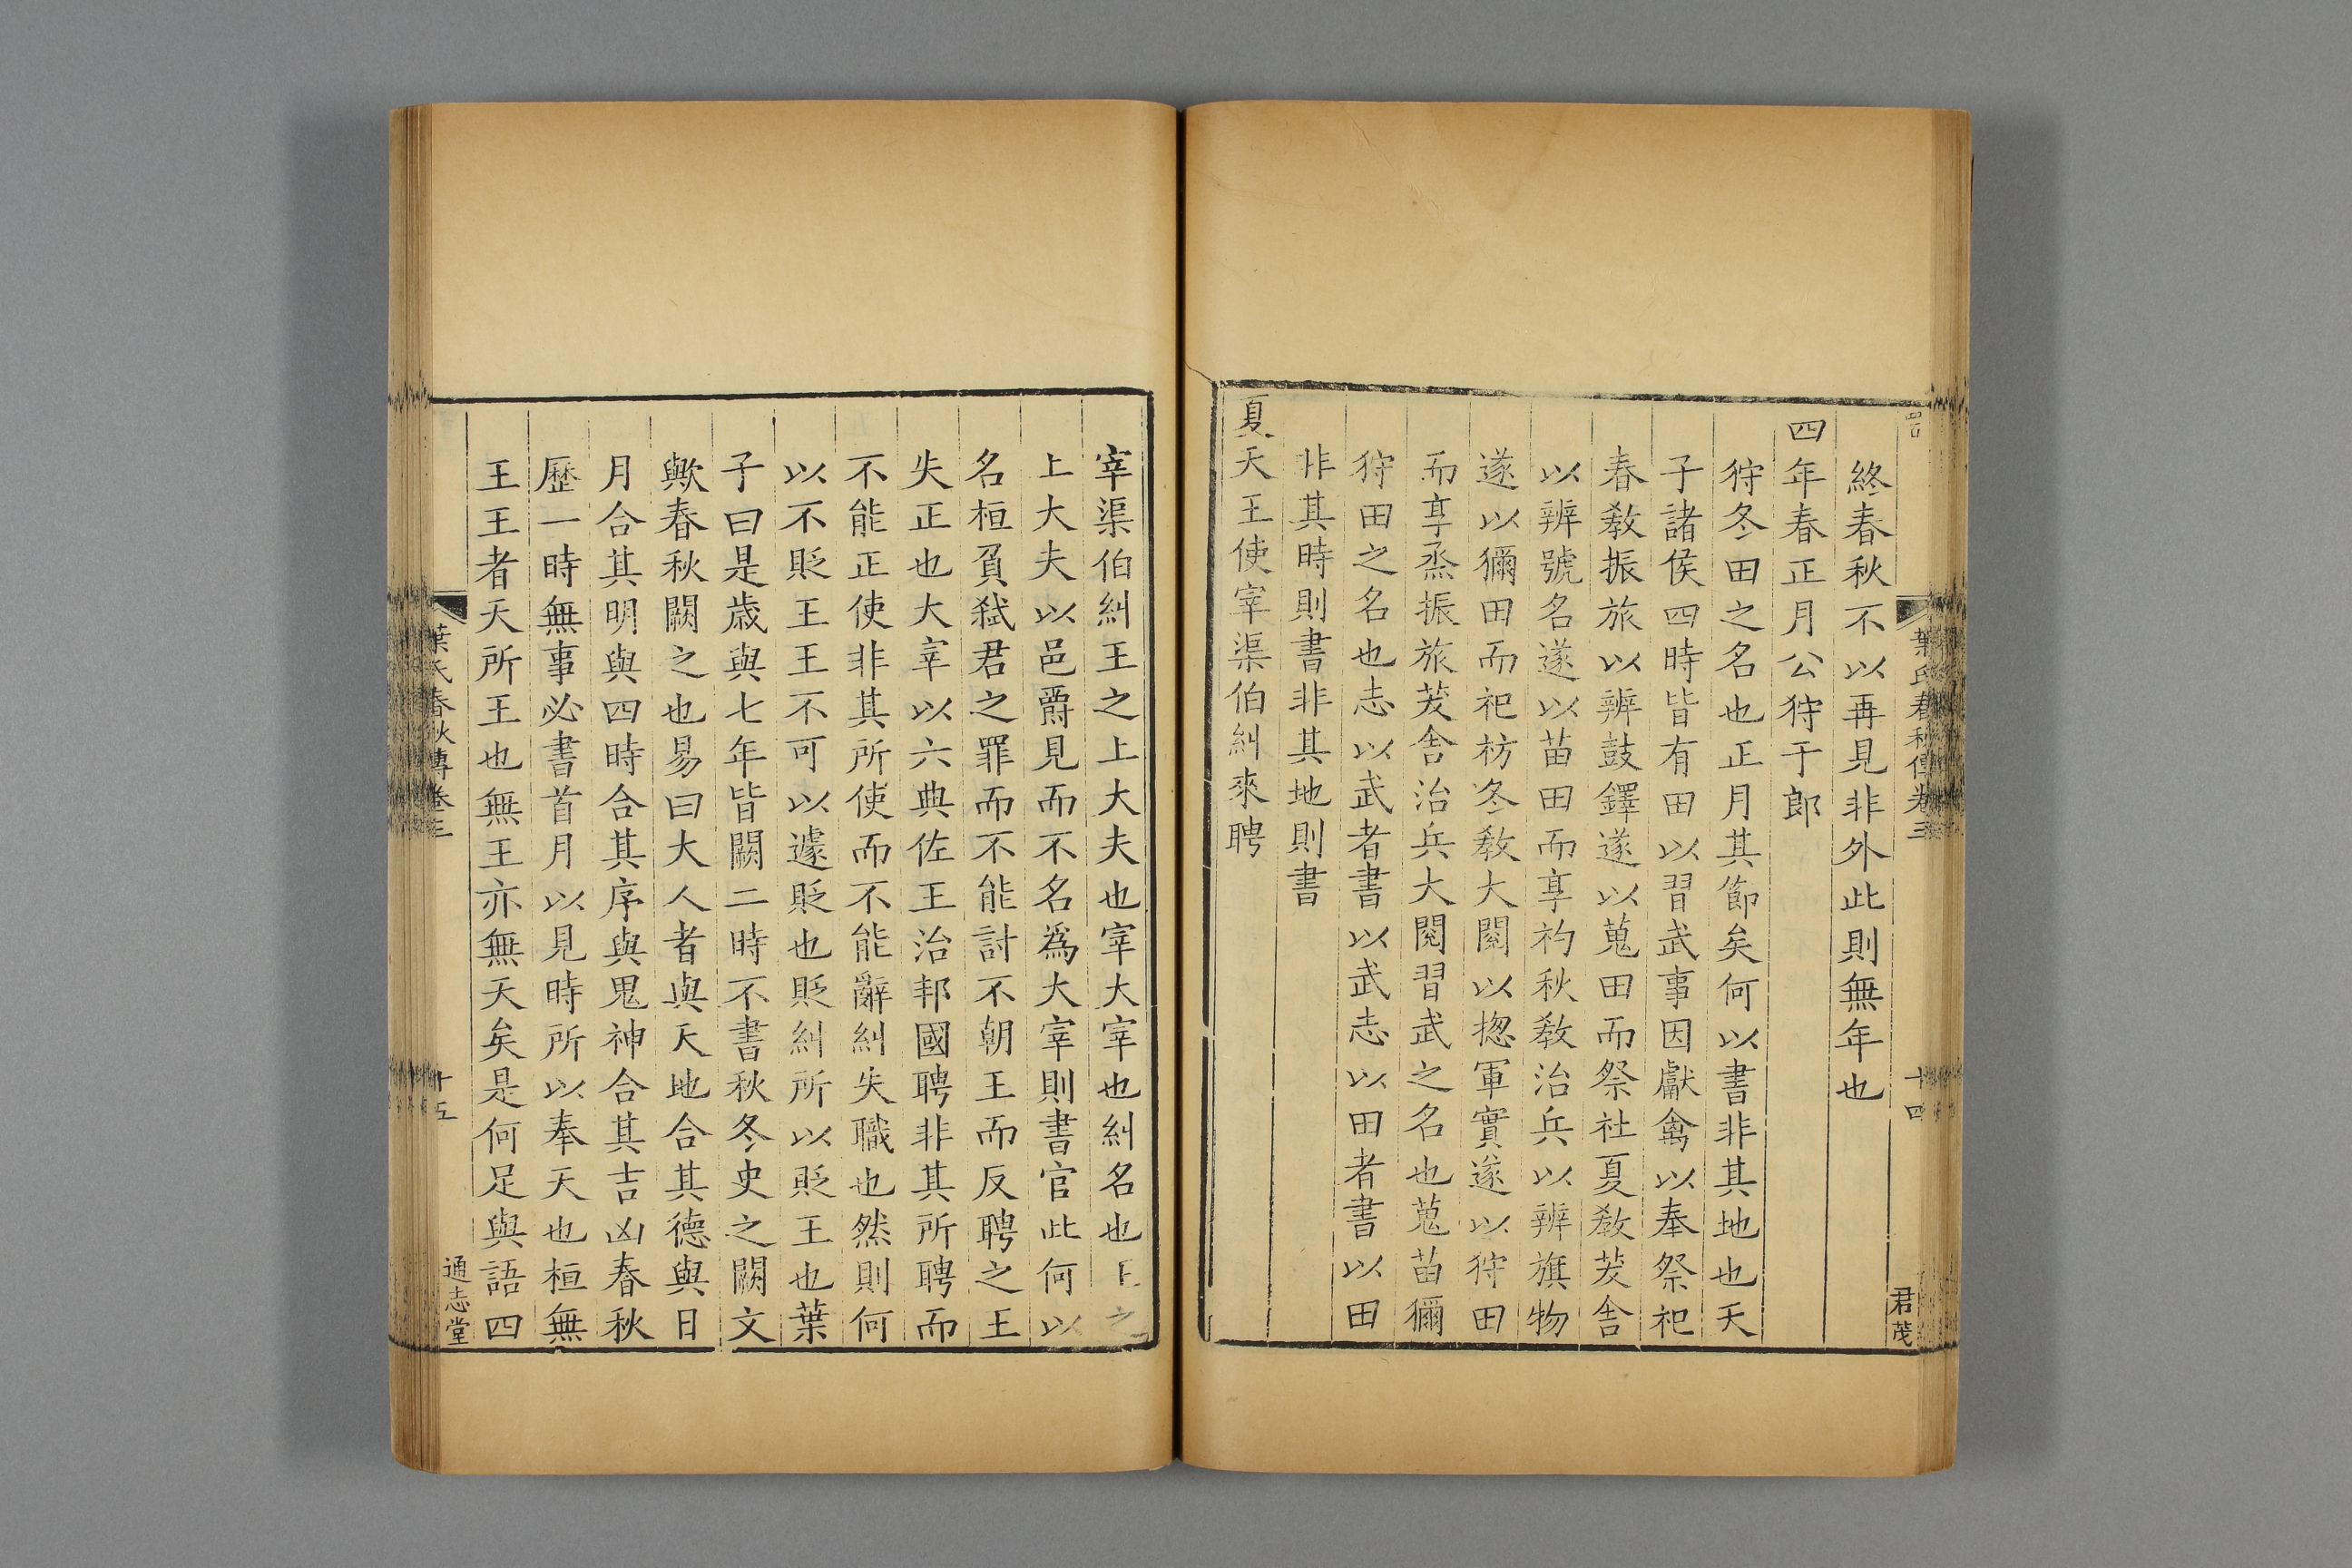 葉氏春秋傳卷三
十四
君茂
終春秋不以再見非外此則無年也
四年春正月公狩于郎
狩冬田之名也正月其節矣何以書非其地也天
子諸侯四時皆有田以習武事因獻禽以奉祭祀
春敎振旅以辨鼓鐸遂以蒐田而祭社夏敎茇舎
以辨號名遂以苗田而享礿秋敎治兵以辨旗物
遂以獮田而祀祊冬敎大閱以揔軍實遂以狩田
而享烝振旅茇舎治兵大閱習武之名也蒐苗獮
狩田之名也志以武者書以武志以田者書以田
非其時則書非其地則書
夏天王使宰渠伯糾來聘
宰渠伯糾王之上大夫也宰大宰也糾名也王之
上大夫以邑爵見而不名爲大宰則書官此何以
名桓負弑君之罪而不能討不朝王而反聘之王
失正也大宰以六典佐王治邦國聘非其所聘而
不能正使非其所使而不能辭糾失職也然則何
以不貶王王不可以遽貶也貶糾所以貶王也葉
子曰是歲與七年皆闕二時不書秋冬史之闕文
歟春秋闕之也易曰大人者與天地合其德與日
月合其明與四時合其序與鬼神合其吉凶春秋
歷一時無事必書首月以見時所以奉天也桓無
王王者天所王也無王亦無天矣是何足與語四
葉氏春秋傳卷三
十五
通志堂